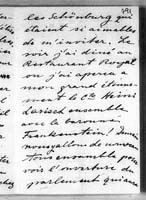 191
les Schönburg qui
étaient si aimables
de m'inviter. Le
soir j'ai dîné au
Restaurant Royal
ou j'aperçu a
mon grand étonne-
ment le Cte Henri
Larisch ensemble
avec la baronne
Frankenstein!
nous allons de nouveau
Tous ensemble pour
voir l'ouverture du
parlement qui aura